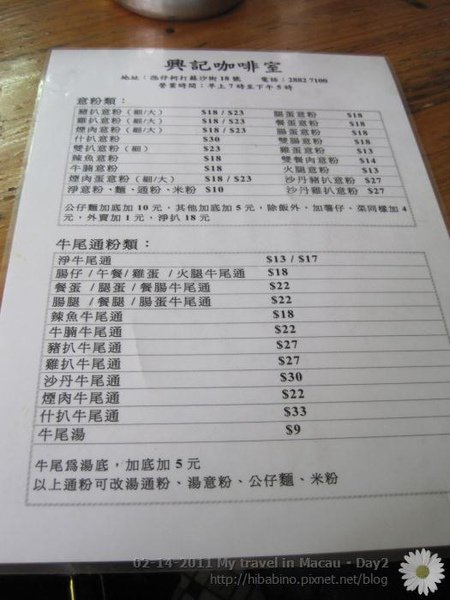 興記咖啡室
地址:氹仔柯打蘇沙街18號 電話:2882 7100
營業時間:早上7時至下午5時
意粉類:
豬扒意粉(細/大) $18 / $23 腸蛋意粉 $18
雞扒意粉(細/大) $18 / $23 餐蛋意粉 $18
煙肉意粉(細/大) $18 / $23 腿蛋意粉 $18
什扒意粉 $30 雙腸意粉 $18
雙扒意粉(細) $23 雞蛋意粉 $13
辣魚意粉 $18 雙餐肉意粉 $14
牛腩意粉 $18 火腿意粉 $13
煙肉蛋意粉(細/大) $18 / $23 沙丹豬扒意粉 $27
淨意粉、麵、通粉、米粉 $10 沙丹雞扒意粉 $27
公仔麵加底加10元,其他加底加5元,除飯外,加薯仔、菜同樣加4
元,外賣加1元,淨扒18元
牛尾通粉類:
淨牛尾通 $13 / $17
腸仔/午餐/雞蛋/火腿牛尾通 $18
餐蛋/腿蛋/餐腸牛尾通 $22
腸腿/餐腿/腸蛋牛尾通 $22
辣魚牛尾通 $18
牛腩牛尾通 $22
豬扒牛尾通 $27
雞扒牛尾通 $27
沙丹牛尾通 $30
煙肉牛尾通 $22
什扒牛尾通 $33
牛尾湯 $9
牛尾為湯底,加底加5元
以上通粉可改湯通粉、湯意粉、公仔麵、米粉
02-14-2011 My travel in Macau - Day2
http://hibabino.pixnet.net/blog